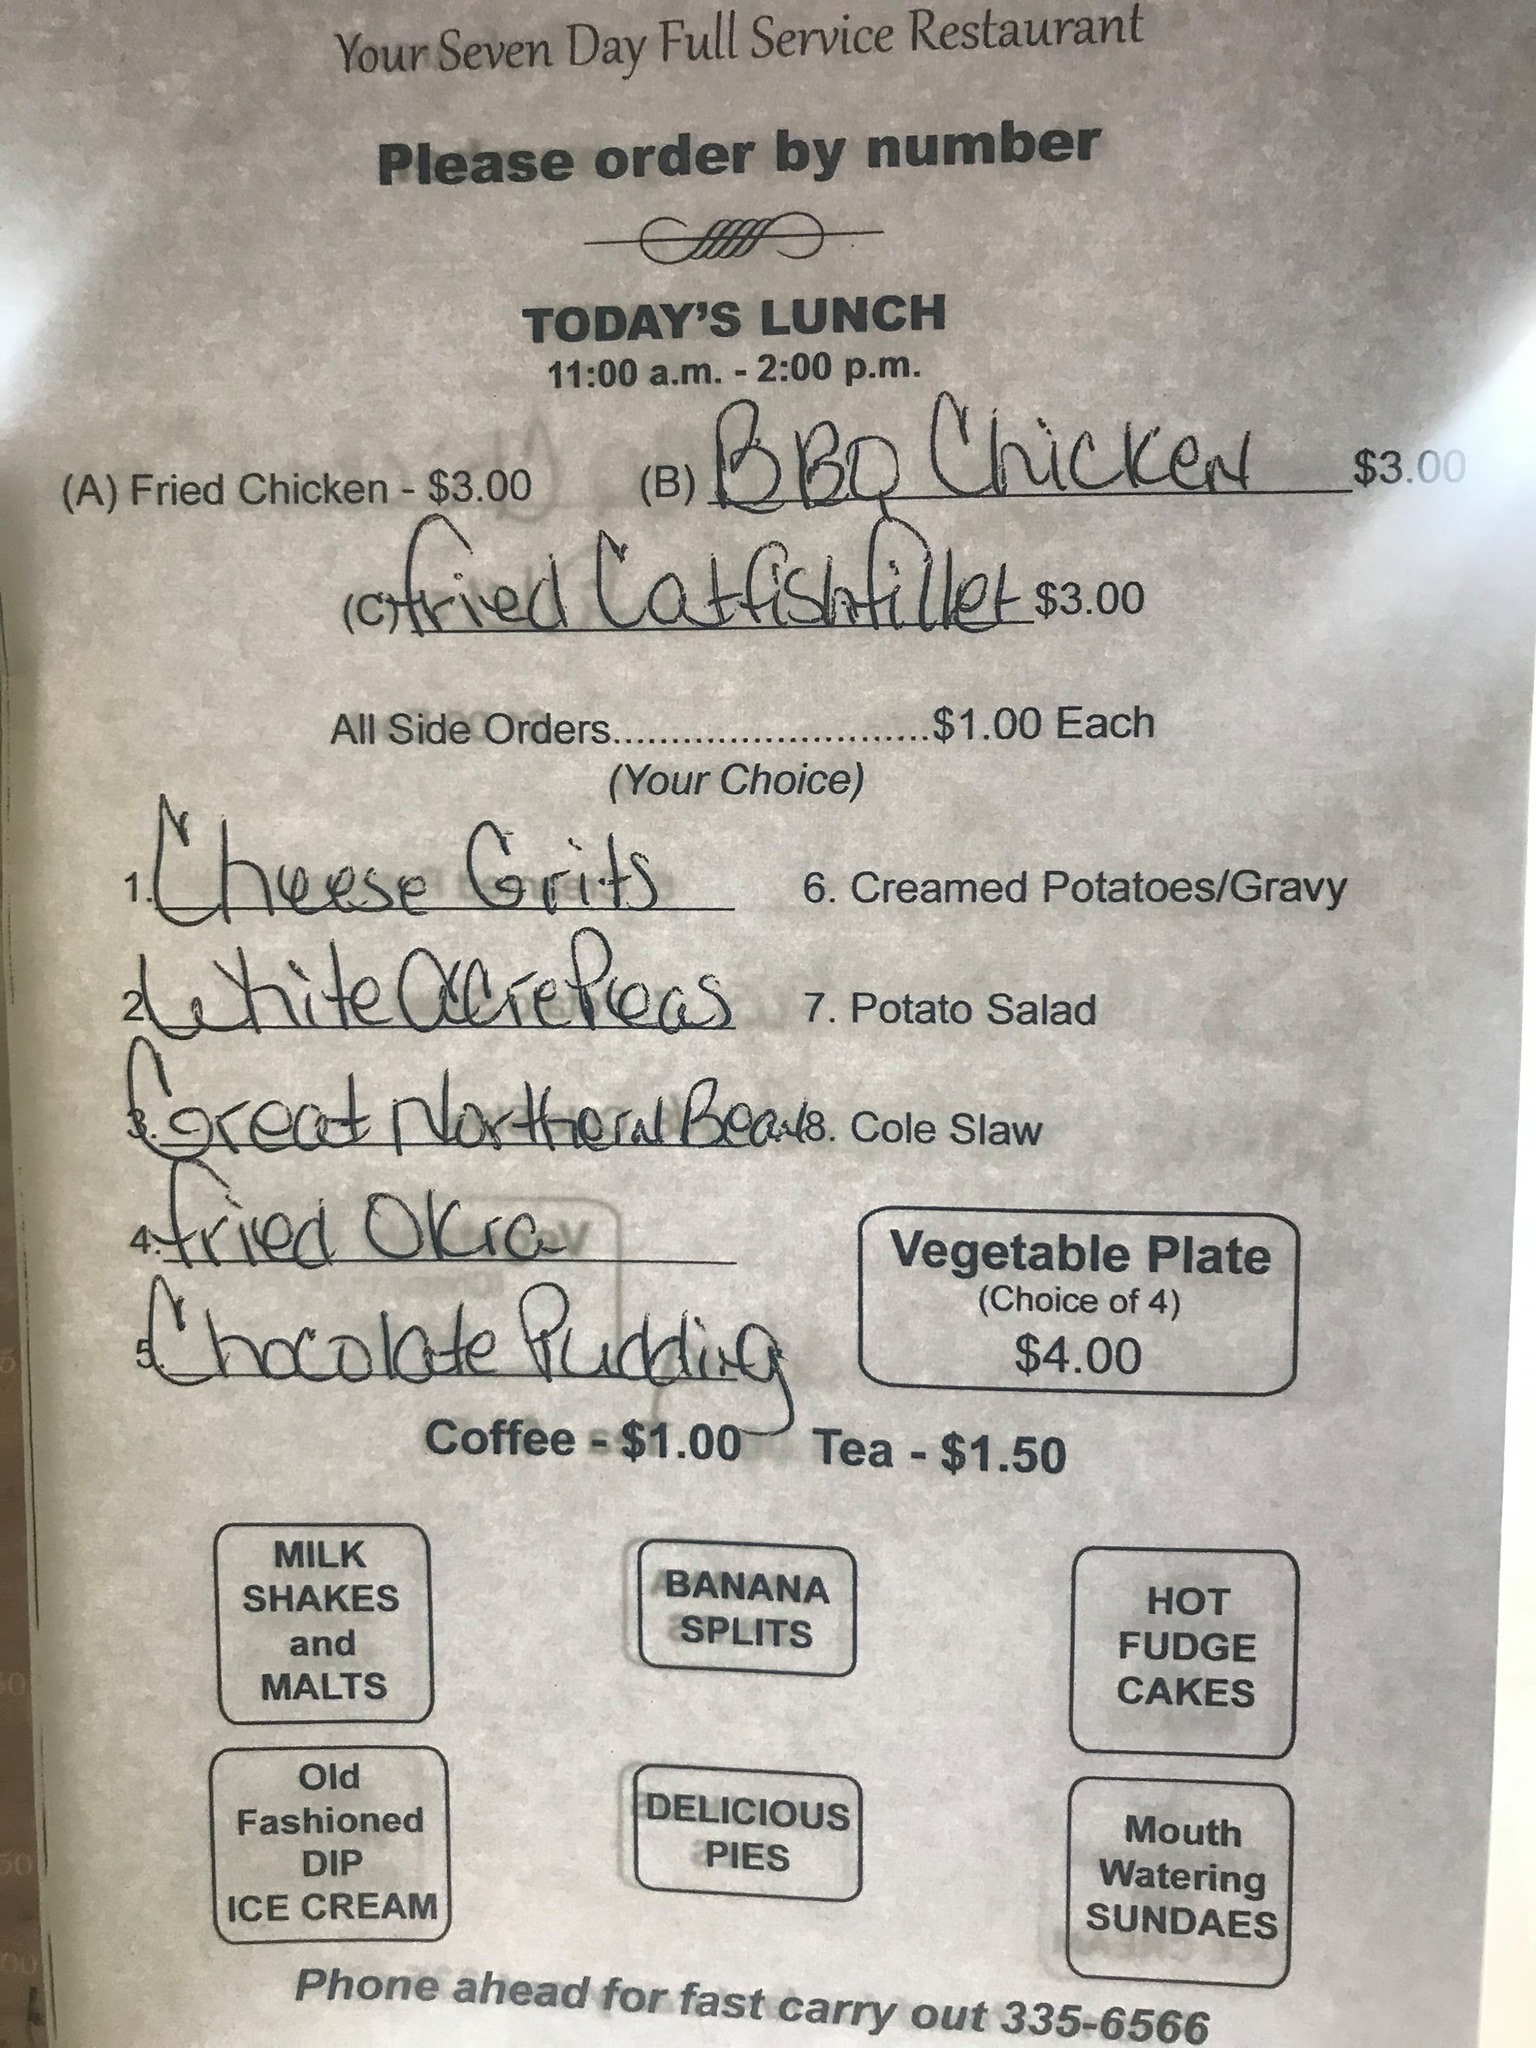 Your Seven Day Full Service Restaurant
Please order by number
TODAY'S LUNCH
11:00 a.m. - 2:00 p.m.
(A) Fried Chicken - $3.00 (B) BBQ Chicken $3.00
(C) Fried Catfish fillet $3.00
All Side Orders...........................$1.00 Each
(Your Choice)
1. Cheese Grits 6. Creamed Potatoes/Gravy
2. White Acre Peas 7. Potato Salad
3. Great Northern Beans 8. Cole Slaw
4. Fried Okra
5. Chocolate Pudding
Vegetable Plate
(Choice of 4)
$4.00
Coffee - $1.00 Tea - $1.50
MILK
SHAKES
and
MALTS
BANANA
SPLITS
HOT
FUDGE
CAKES
Old
Fashioned
DIP
ICE CREAM
DELICIOUS
PIES
Mouth
Watering
SUNDAES
Phone ahead for fast carry out 335-6566